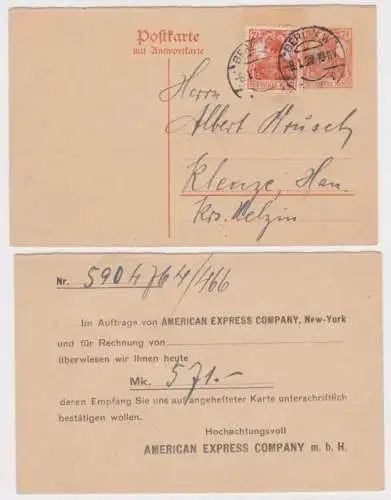 Postkarte
mit Antwortkarte
BERLIN W
Herrn
Albert Krusch
Klenze, Han.
Krs. Uelzin
Nr. 5904764/466
Im Auftrage von AMERICAN EXPRESS COMPANY, New-York
und für Rechnung von
überwiesen wir Ihnen heute
Mk. 571.-
deren Empfang Sie uns auf angehefteter Karte unterschriftlich
bestätigen wollen.
Hochachtungsvoll
AMERICAN EXPRESS COMPANY m. b. H.